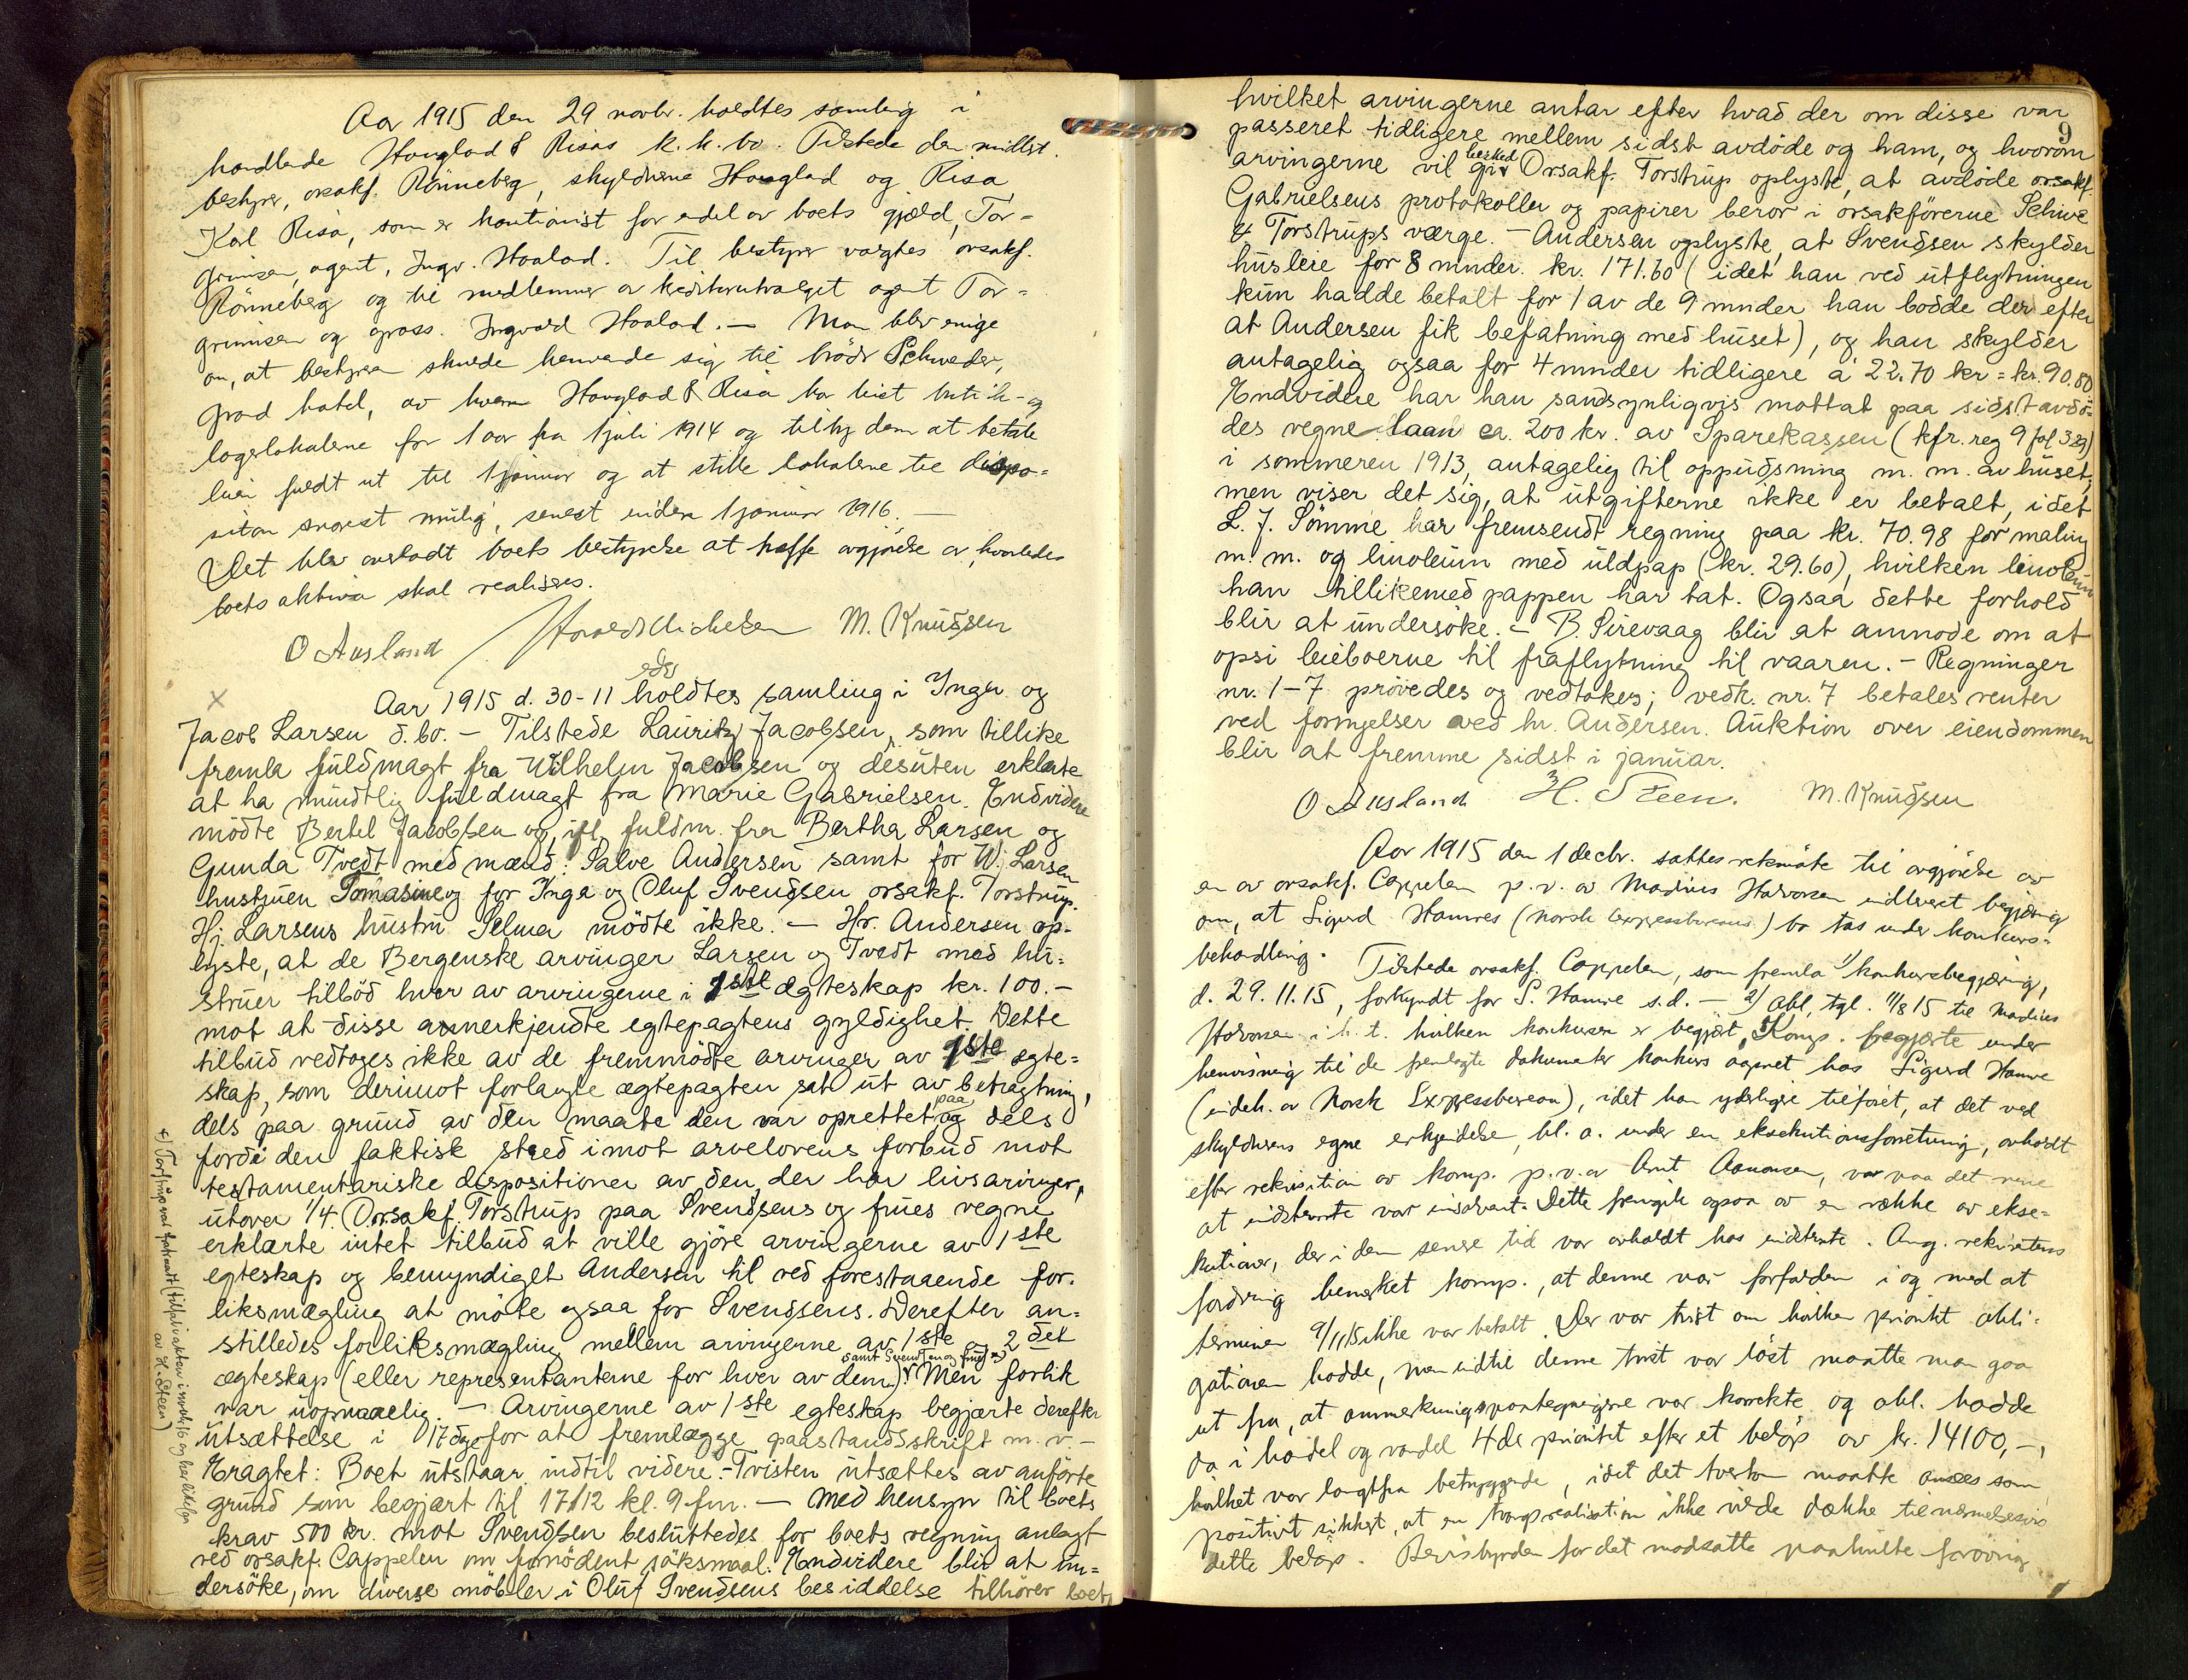 Aar 1915 den 29 novbr. holdtes samling i
handlende Hauglad & Risas k. k. bo. Tilstede den midlt.
bestyrer, orsakf. Rönneberg, skyldnerne Hauglad og Risa,
Karl Risa, som er kautionist for endel av boets gjæld, Tor-
grimsen, agent, Ingv. Haaland. Til bestyrer valgtes orsakf.
Rönneberg og til medlemmer av kreditorutvalget agent Tor-
grimsen og gross. Ingvald Haaland. — Man blev enige
om, at bestyreren skulde henvende sig til brödr Schweder,
Grand hotel, av hvem Hauglad & Risa har leiet butik- og
lagerlokalerne for 1 aar fra 1 juli 1914 og tilby dem at betale
leien fuldt ut til 1 januar og at stille lokalerne til dispo-
sition snarest mulig, senest inden 1 januar 1916. —
Det blev overladt boets bestyrelse at træffe avgjörelse av, hvorledes
boets aktiva skal realiseres.
O Ausland Harald Michelsen M. Knudsen
Aar 1915 d. 30-11 holdtes samling i Inger og
Jacob Larsen d. bo. - Tilstede Lauritz Jacobsen, som tillike
fremla fuldmagt fra Wilhelm Jacobsen og desuten erklærte
at ha mundtlig fuldmagt fra Marie Gabrielsen. Endvidere
mödte Bertel Jacobsen og, ifl. fuldm. fra Bertha Larsen og
Gunda Tvedt med mænd: Salve Andersen samt for W. Larsen
hustruen Tomasine og for Inga og Oluf Svendsen orsakf. Torstrup.
Hj. Larsens hustru Selma mödte ikke. — Hr. Andersen op-
lyste, at de Bergenske arvinger Larsen og Tvedt med hu-
struer tilböd hver av arvingerne i 1ste ægteskap kr. 100.-
mot at disse anerkjendte egtepagtens gyldighet. Dette
tilbud vedtoges ikke av de fremmödte arvinger av 1ste egte-
skap, som derimot forlangte ægtepagten sat ut av betragtning,
dels paa grund av den maate den var oprettet paa og dels
fordi den faktisk stred imot arvelovens forbud mot
testamentariske dispositioner av den, der har livsarvinger,
utover 1/4. Orsakf. Torstrup paa Svendsens og frues vegne
erklærte intet tilbud at ville gjöre arvingerne av 1ste
egteskap og bemyndiget Andersen til ved forestaaende for-
liksmægling at möte ogsaa for Svendsens. Derefter an-
stilledes forliksmægling mellem arvingerne av 1ste og 2det
ægteskap (eller representanterne for hver av dem) samt Svendsen og frue. Men forlik
var uopnaaelig. — Arvingerne av 1ste egteskap begjærte derefter
utsættelse i 17 dge for at fremlægge paastandsskrift m. v. -
Eragtet: Boet utstaar indtil videre. - Tvisten utsættes av anförte
grund som begjært til 17/12 kl. 9 fm. — Med hensyn til boets
krav 500 kr. mot Svendsen besluttedes for boets regning anlagt
ved orsakf. Cappelen om fornödent söksmaal. Endvidere blir at un-
dersöke, om diverse möbler i Oluf Svendsens besiddelse tilhörer boet,
9
hvilket arvingerne antar efter hvad der om disse var
passeret tidligere mellem sidst avdöde og ham, og hvorom
arvingerne vil gi besked. Orsakf. Torstrup oplyste, at avdöde orsakf.
Gabrielsens protokoller og papirer beror i orsakförerne Schive
& Torstrups værge. - Andersen oplyste, at Svendsen skylder
husleie for 8 mnder. kr. 171.60 (idet han ved utflytningen
kun hadde betalt for 1 av de 9 mnder han bodde der efter
at Andersen fik befatning med huset), og han skylder
antagelig ogsaa for 4 mnder tidligere à 22.70 kr = kr. 90.80
Endvidere har han sandsynligvis mottat paa sidst avdö-
des vegne laan ca. 200 kr. av Sparekassen (kfr. reg 9 fol 329)
i sommeren 1913, antagelig til oppudsning m. m. av huset,
men viser det sig, at utgifterne ikke er betalt, idet
L. J. Sömme har fremsendt regning paa kr. 70.98 for maling
m. m. og linoleum med uldpap (kr. 29.60), hvilken linoleum
han tillikemed pappen har tat. Ogsaa dette forhold
blir at undersöke. - B. Sirevaag blir at anmode om at
opsi leieboerne til fraflytning til vaaren. - Regninger
nr. 1-7 prövedes og vedtokes; vedk. nr. 7 betales renter
ved fornyelser ved hr. Andersen. Auktion over eiendommen
blir at fremme sidst i januar.
O Ausland H. Steen. M. Knudsen
Aar 1915 den 1 decbr. sattes retsmöte til avgjörelse av
en av orsakf. Cappelen p. v. av Madius Halvorsen indleveret begjæring
om, at Sigurd Hamres (Norsk Expressbureaus) bo tas under konkurs-
behandling. Tilstede orsakf. Cappelen, som fremla 1/ konkursbegjæring,
d. 29.11.15, forkyndt for S. Hamre s.d. — 2/ obl. tgl. 11/8 15 til Madius
Halvorsen i h. t. hvilken konkursen er begjært. Komp. begjærte under
henvisning til de fremlagte dokumenter konkurs aapnet hos Sigurd Hamre
(indeh. av Norsk Expressbureau), idet han yderligere tilföiet, at det ved
skyldnerens egne erkjendelse, bl. a. under en eksekutionsforretning, avholdt
efter rekvisition av komp. p. v. av Arnt Aanonsen, var paa det rene
at indstevnte var insolvent. Dette fremgik ogsaa av en række av ekse-
kutioner, der i den senere tid var avholdt hos indstevnte. Ang. rekvirentens
fordring bemerket komp., at denne var forfalden i og med at
terminen 9/11 15 ikke var betalt. Der var tvist om hvilken prioritet obli-
gationen hadde, men indtil denne tvist var löst maatte man gaa
ut fra, at anmerkningspaategningene var korrekte og obl. hadde
da i handel og vandel 4de prioritet efter et belöp av kr. 14100,-,
hvilket var langtfra betryggende, idet det tvertom maatte ansees som
positivt sikkert, at en tvangsrealisation ikke vilde dække tilnærmelsesvis
dette belöp. Bevisbyrden for det motsatte paahvilte forövrig